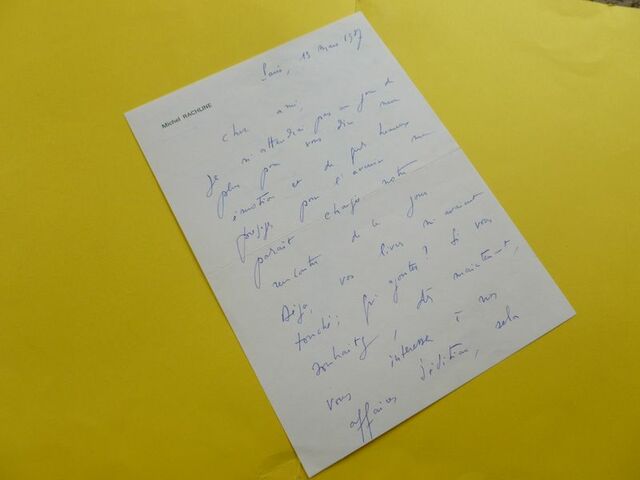 Michel RACHLINE
Paris, 13 mars 1987
Cher ami,
Je n'attendrai pas un jour de
plus pour vous dire mon
émotion et de quels heureux
présages pour l'avenir me
paraît chargée notre
rencontre de ce jour
Déjà, vos livres m'avaient
touché ; qu'ajouter ? Si vous
souhaitez, dès maintenant,
vous intéresser à nos
affaires d'édition, cela